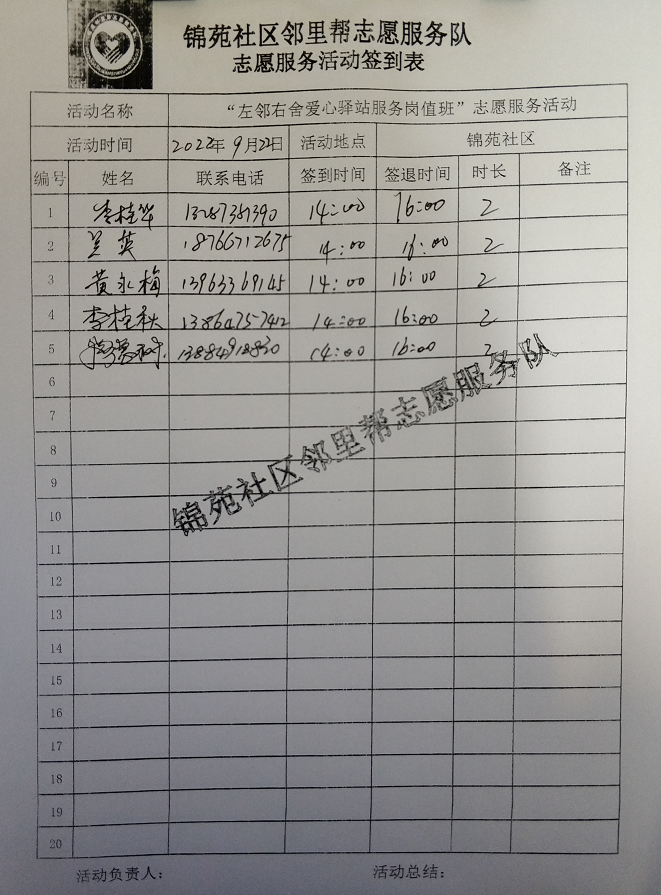 锦苑社区邻里帮志愿服务队
志愿服务活动签到表
活动名称 “左邻右舍爱心驿站服务岗值班”志愿服务活动
活动时间 2022年9月22日 活动地点 锦苑社区
编号 姓名 联系电话 签到时间 签退时间 时长 备注
1 李桂华 13287381390 14:00 16:00 2
2 英 18766712675 14:00 16:00 2
3 黄永梅 13963369145 14:00 16:00 2
4 李桂秋 13864757412 14:00 16:00 2
5 13884918830 14:00 16:00 2
6
7
8
锦苑社区邻里帮志愿服务队
9
10
11
12
13
14
15
16
17
18
19
20
活动负责人: 活动总结: